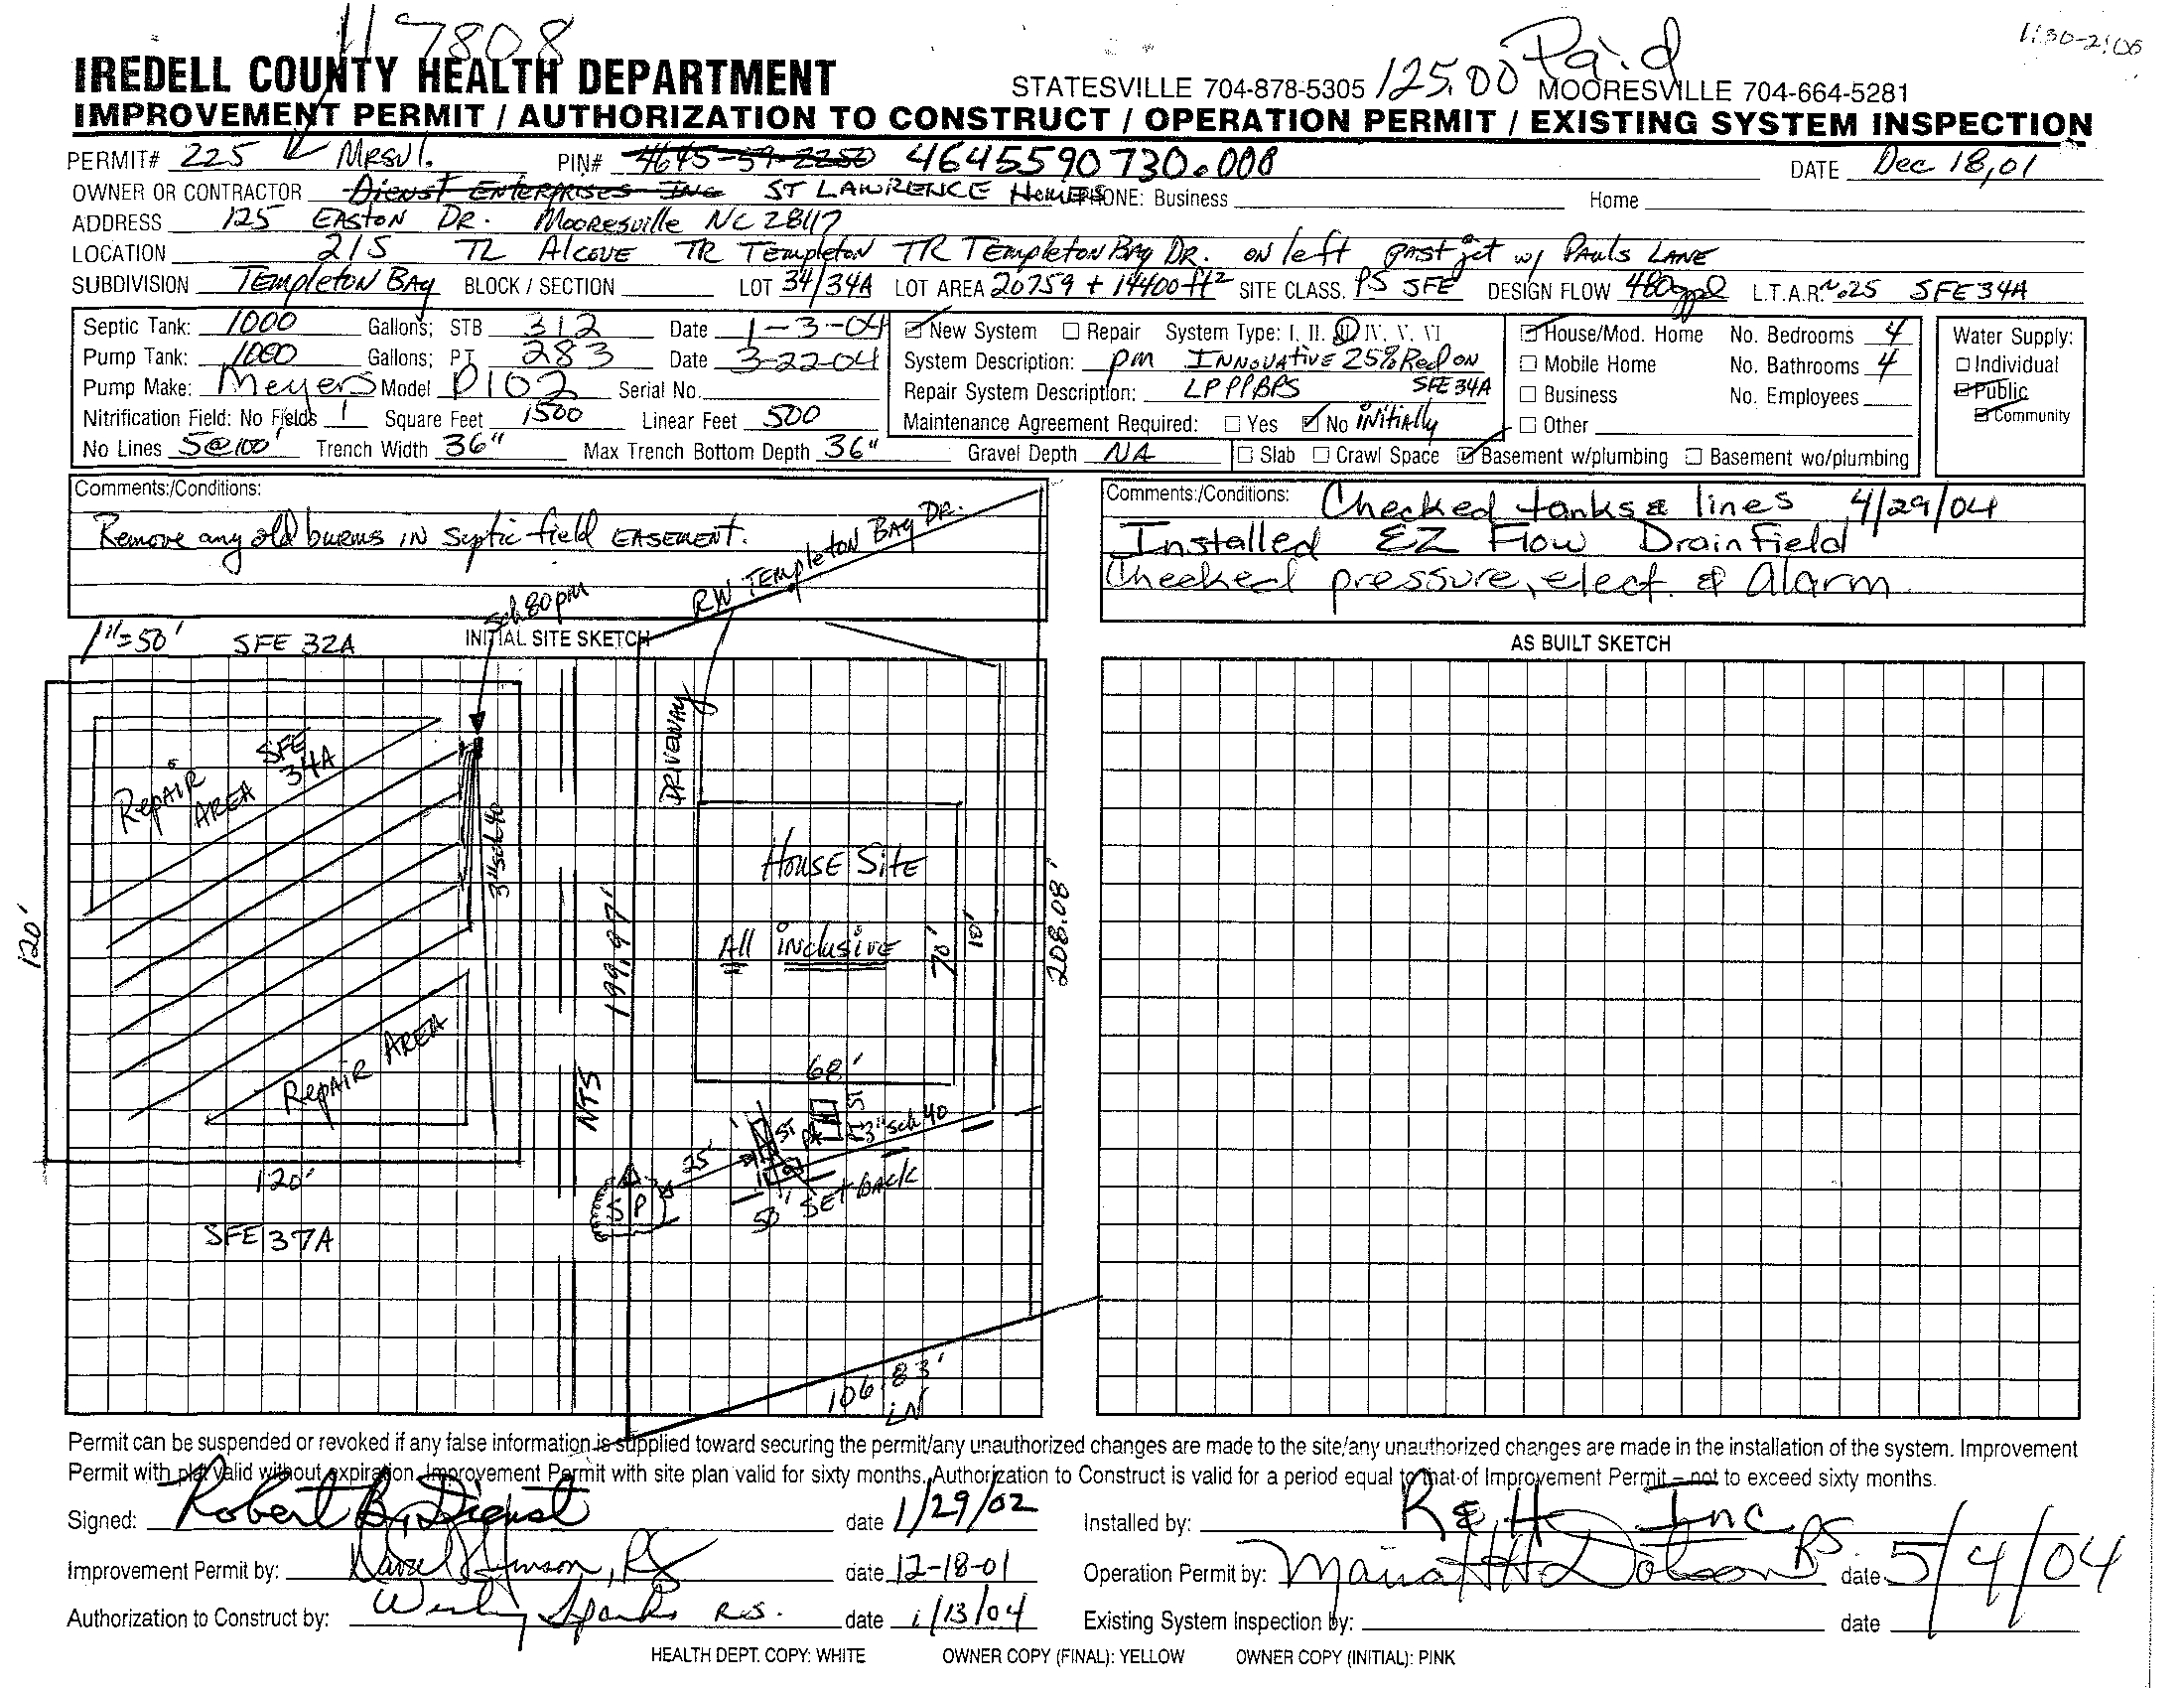 H 7808
1:30-2:00
IREDELL COUNTY HEALTH DEPARTMENT STATESVILLE 704-878-5305 125.00 Paid MOORESVILLE 704-664-5281
IMPROVEMENT PERMIT / AUTHORIZATION TO CONSTRUCT / OPERATION PERMIT / EXISTING SYSTEM INSPECTION
PERMIT# 225 MRSVl. PIN# 4645-59-2250 4645590730.000 DATE Dec 18,01
OWNER OR CONTRACTOR DIENST ENTERPRISES INC ST LAWRENCE HOMES PHONE: Business Home
ADDRESS 125 EASTON DR. MOORESVILLE NC 28117
LOCATION 21S TL Alcove TR Templeton TR Templeton Bay DR. on left past jct w/ Pauls LANE
SUBDIVISION Templeton Bay BLOCK / SECTION LOT 34/34A LOT AREA 20759 + 14400 ft² SITE CLASS. PS SFE DESIGN FLOW 480 gpd L.T.A.R. .025 SFE 34A
Septic Tank: 1000 Gallons; STB 312 Date 1-3-04
Pump Tank: 1000 Gallons; PT 283 Date 3-22-04
Pump Make: Meyers Model P102 Serial No.
Nitrification Field: No Fields 1 Square Feet 1500 Linear Feet 500
No Lines 5@100' Trench Width 36" Max Trench Bottom Depth 36" Gravel Depth NA
New System Repair System Type: I, II, III, IV, V, VI
System Description: pm INNOVATIVE 25% Red ON
Repair System Description: LPP/PBPS SFE 34A
Maintenance Agreement Required: Yes No INITIALLY
House/Mod. Home No. Bedrooms 4
Mobile Home No. Bathrooms 4
Business No. Employees
Other
Slab Crawl Space Basement w/plumbing Basement wo/plumbing
Water Supply:
Individual
Public
Community
Comments:/Conditions:
Remove any old burms IN Septic field EASEMENT.
Comments:/Conditions: Checked tanks & lines 4/29/04
Installed EZ Flow Drainfield
Checked pressure, elect. & Alarm
1"=50' SFE 32A INITIAL SITE SKETCH
sch 80 pm
RW TEMPLETON BAY DR.
AS BUILT SKETCH
DRIVEWAY
REPAIR AREA SFE 34A
3" sch 40
HOUSE SITE
All inclusive
120'
199.97'
70'
10'
208.08'
REPAIR AREA
NTS
68'
ST
ST
3" sch 40
25'
SP
50' SETBACK
120'
SFE 37A
106.83'
LN
Permit can be suspended or revoked if any false information is supplied toward securing the permit/any unauthorized changes are made to the site/any unauthorized changes are made in the installation of the system. Improvement
Permit with plat valid without expiration. Improvement Permit with site plan valid for sixty months. Authorization to Construct is valid for a period equal to that of Improvement Permit - not to exceed sixty months.
Signed: Robert B. Dienst date 1/29/02 Installed by: R & H Inc
Improvement Permit by: date 12-18-01 Operation Permit by: Maria H Dotson RS date 5/4/04
Authorization to Construct by: Wesley Sparks R.S. date 1/13/04 Existing System Inspection by: date
HEALTH DEPT. COPY: WHITE OWNER COPY (FINAL): YELLOW OWNER COPY (INITIAL): PINK